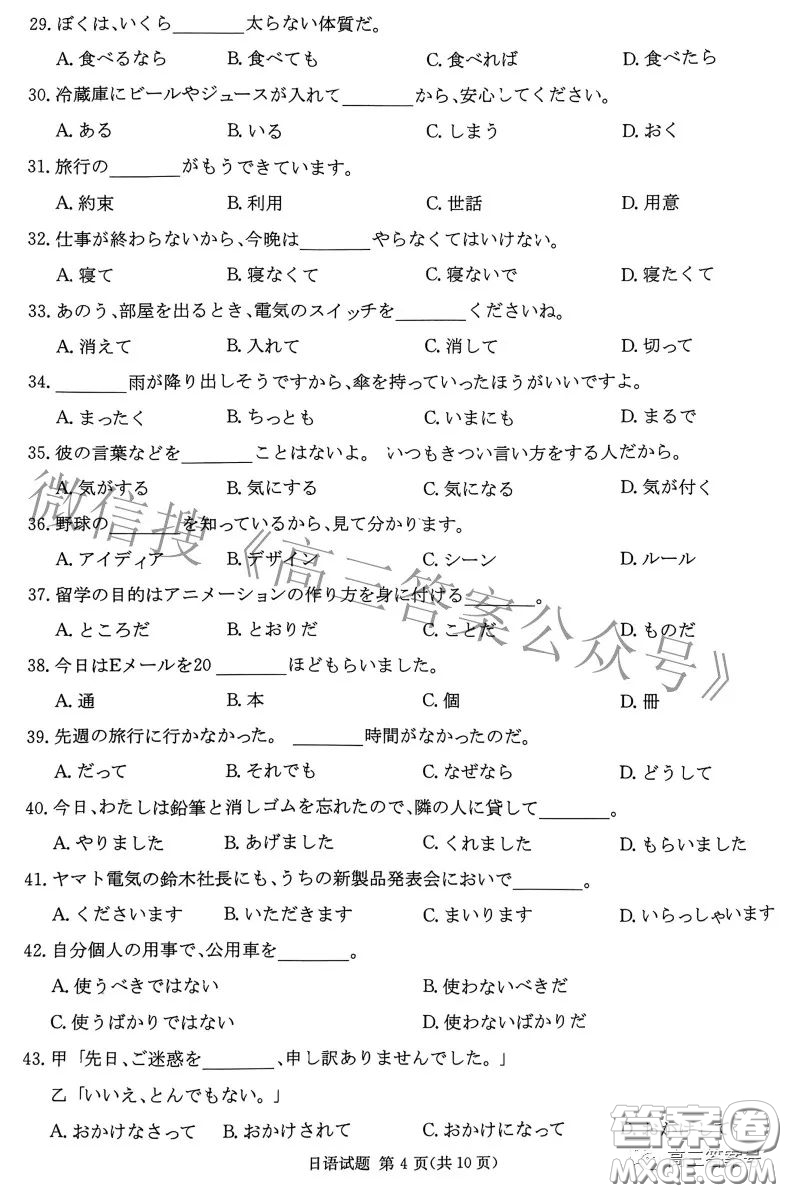 29. ぼくは、いくら________太らない体質だ。
A. 食べるなら B. 食べても C. 食べれば D. 食べたら
30. 冷蔵庫にビールやジュースが入れて________から、安心してください。
A. ある B. いる C. しまう D. おく
31. 旅行の________がもうできています。
A. 約束 B. 利用 C. 世話 D. 用意
32. 仕事が終わらないから、今晩は________やらなくてはいけない。
A. 寝て B. 寝なくて C. 寝ないで D. 寝たくて
33. あのう、部屋を出るとき、電気のスイッチを________くださいね。
A. 消えて B. 入れて C. 消して D. 切って
34. ________雨が降り出しそうですから、傘を持っていったほうがいいですよ。
A. まったく B. ちっとも C. いまにも D. まるで
35. 彼の言葉などを________ことはないよ。 いつもきつい言い方をする人だから。
A. 気がする B. 気にする C. 気になる D. 気が付く
36. 野球の________を知っているから、見て分かります。
A. アイディア B. デザイン C. シーン D. ルール
37. 留学の目的はアニメーションの作り方を身に付ける________。
A. ところだ B. とおりだ C. ことだ D. ものだ
38. 今日はEメールを20________ほどもらいました。
A. 通 B. 本 C. 個 D. 冊
39. 先週の旅行に行かなかった。 ________時間がなかったのだ。
A. だって B. それでも C. なぜなら D. どうして
40. 今日、わたしは鉛筆と消しゴムを忘れたので、隣の人に貸して________。
A. やりました B. あげました C. くれました D. もらいました
41. ヤマト電気の鈴木社長にも、うちの新製品発表会においで________。
A. くださいます B. いただきます C. まいります D. いらっしゃいます
42. 自分個人の用事で、公用車を________。
A. 使うべきではない B. 使わないべきだ
C. 使うばかりではない D. 使わないばかりだ
43. 甲「先日、ご迷惑を________、申し訳ありませんでした。」
乙「いいえ、とんでもない。」
A. おかけなさって B. おかけされて C. おかけになって
日语试题 第 4 页(共 10 页)
微信搜《高三答案公众号》
答案卷
高三答案号
MXQE.COM